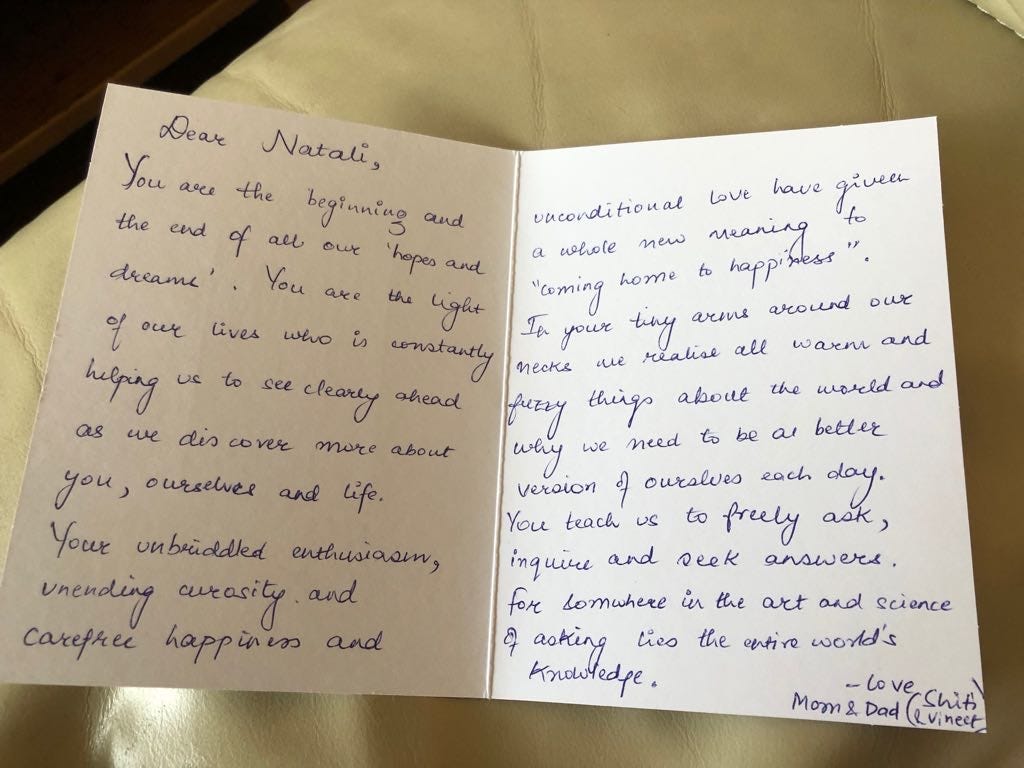 Dear Natali,
You are the beginning and
the end of all our 'hopes and
dreams'. You are the light
of our lives who is constantly
helping us to see clearly ahead
as we discover more about
you, ourselves and life.
Your unbriddled enthusiasm,
unending curosity and
carefree happiness and
unconditional love have given
a whole new meaning to
"coming home to happiness".
In your tiny arms around our
necks we realise all warm and
fuzzy things about the world and
why we need to be a better
version of ourslves each day.
You teach us to freely ask,
inquire and seek answers.
for somwhere in the art and science
of asking lies the entire world's
knowledge.
- Love
Mom & Dad (Shiti
& Vineet)